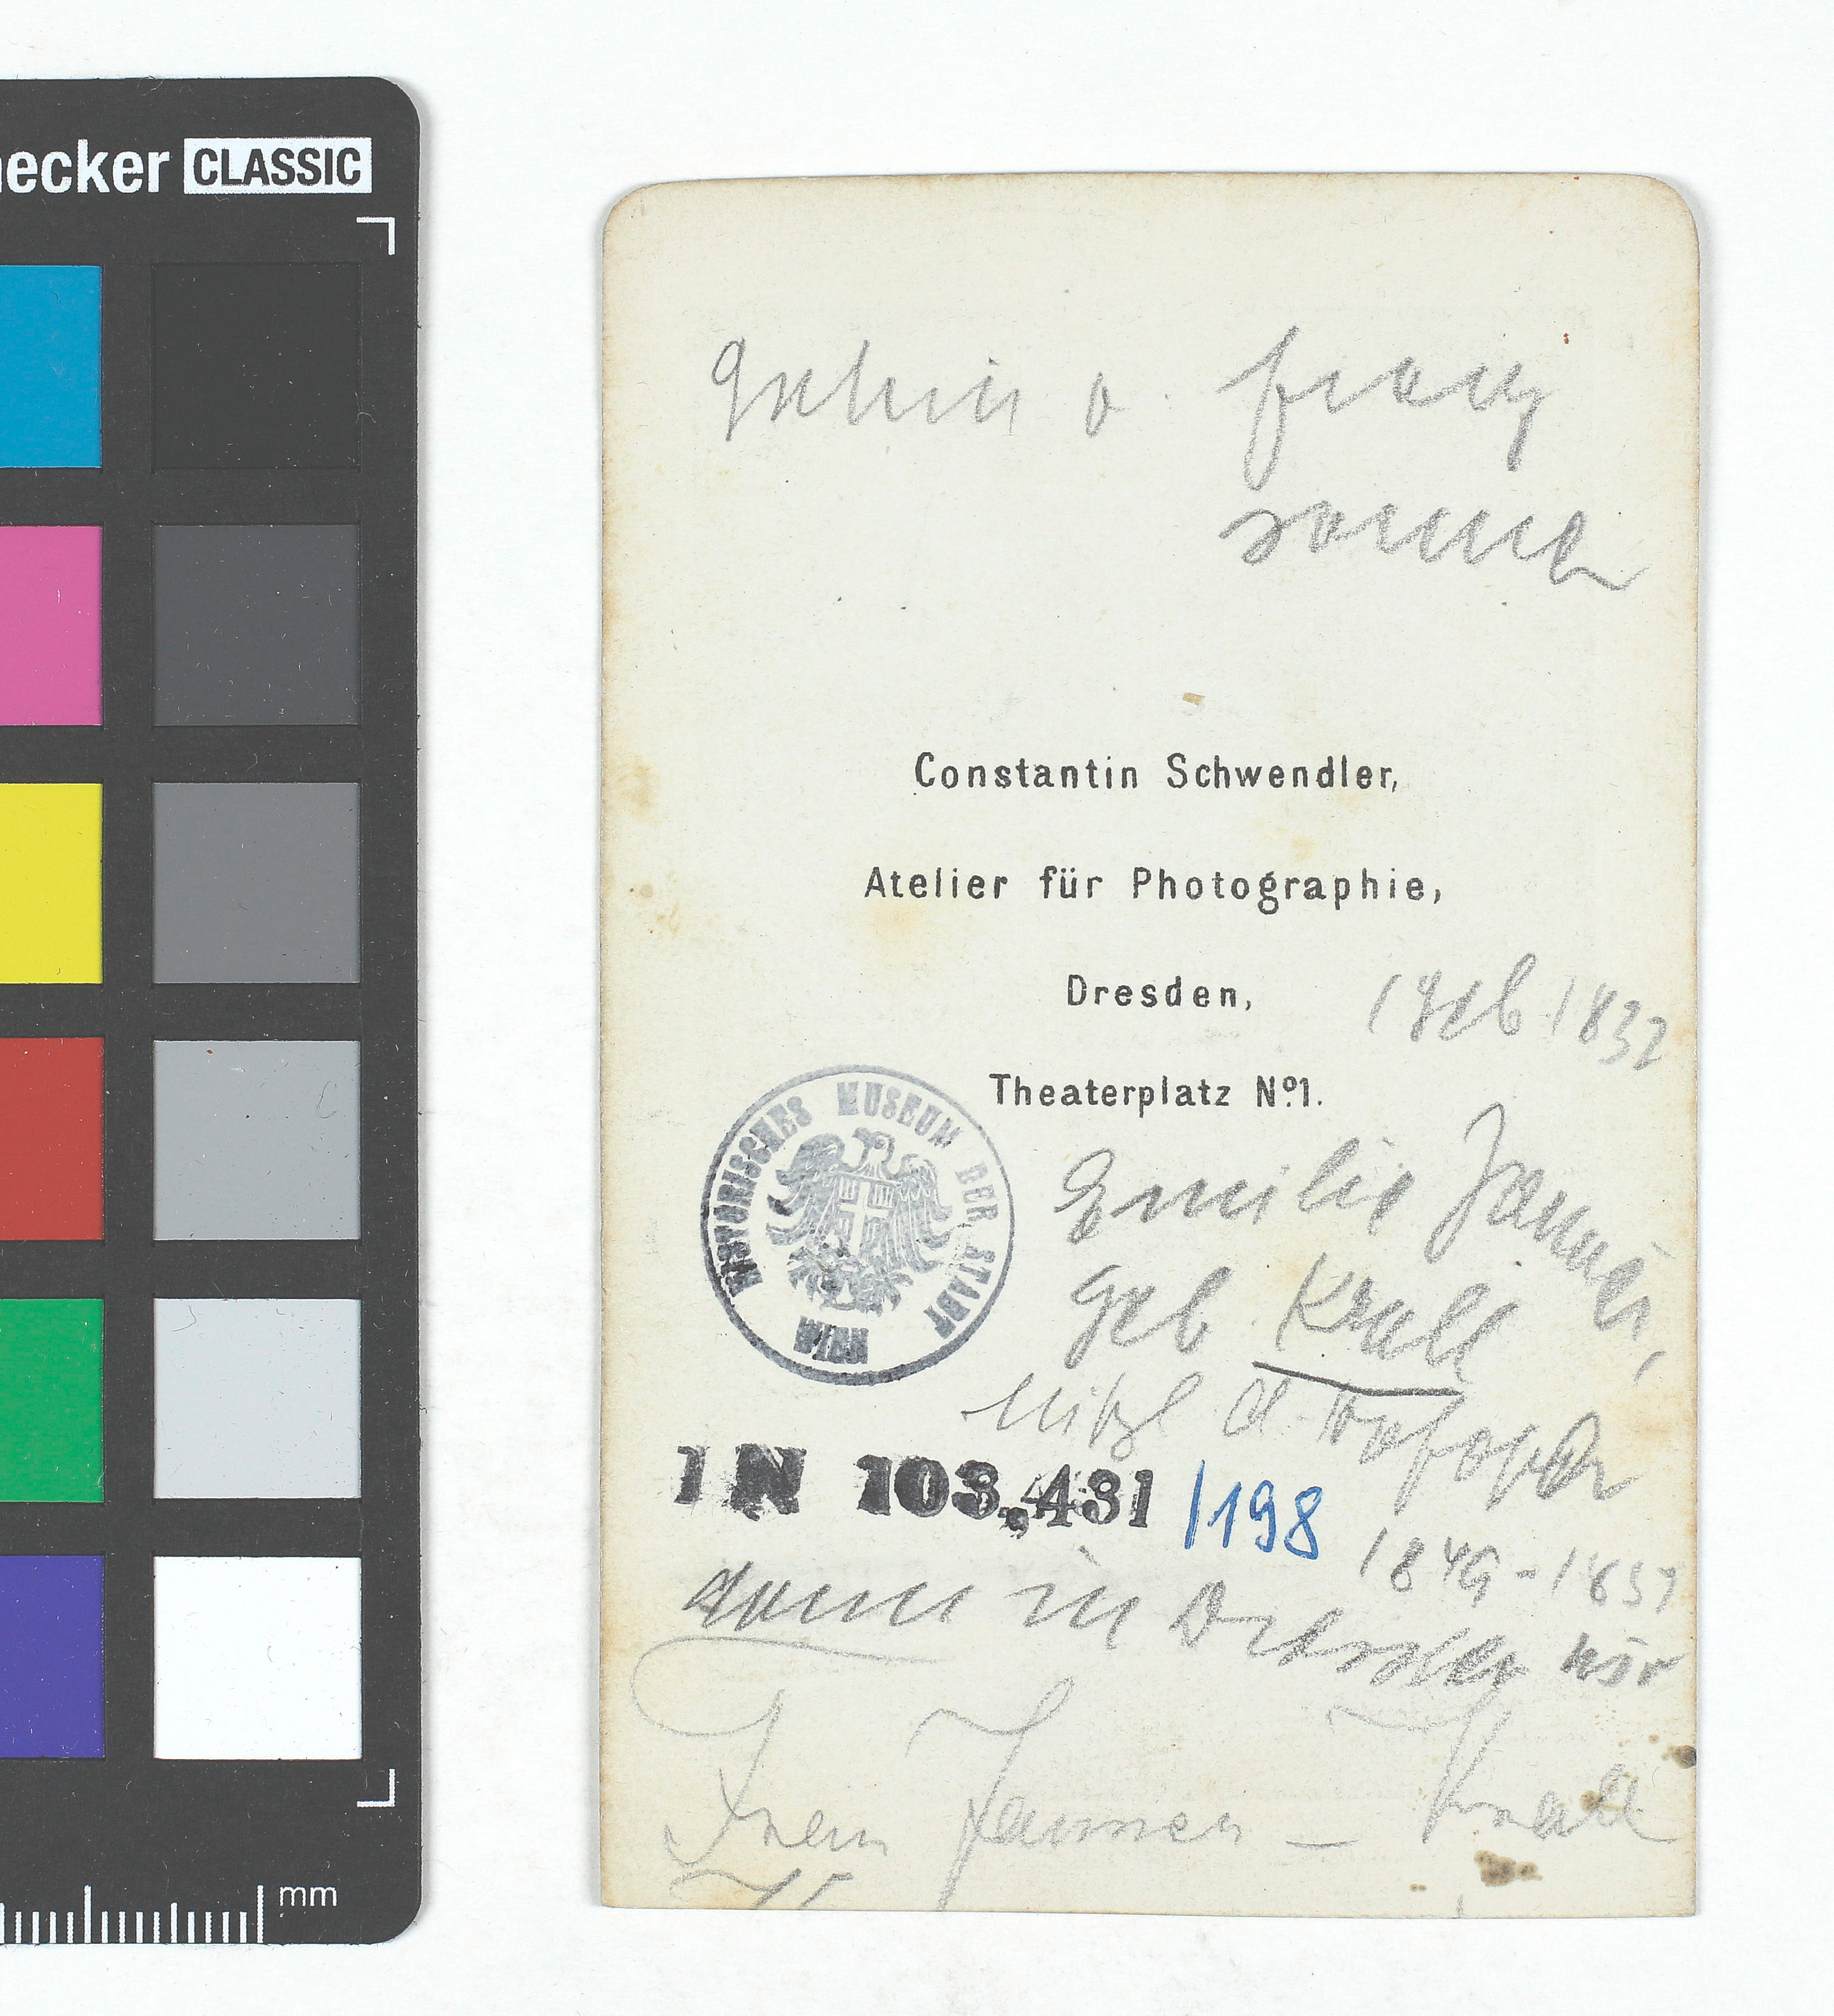 necker CLASSIC
Gattin v. Franz
Jauner
Constantin Schwendler,
Atelier für Photographie,
Dresden,
(geb 1832
Theaterplatz Nº1.
HISTORISCHES MUSEUM DER STADT WIEN
Emilie Jauner,
geb. Krall
Mitgl d. Hofoper
IN 103.431 /198
1849-1857
dann in Dresden
Frau Jauner - Krall
mm